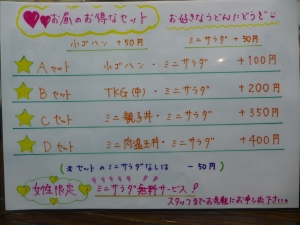 お昼のお得なセット
お好きなうどんにどうぞ
小ゴハン +50円 ミニサラダ +50円
Aセット 小ゴハン・ミニサラダ +100円
Bセット TKG(中)・ミニサラダ +200円
Cセット ミニ親子丼・ミニサラダ +350円
Dセット ミニ肉温玉丼・ミニサラダ +400円
(※セットのミニサラダなしは -50円)
女性限定 ミニサラダ無料サービス!
スタッフまでお気軽にお申し下さい